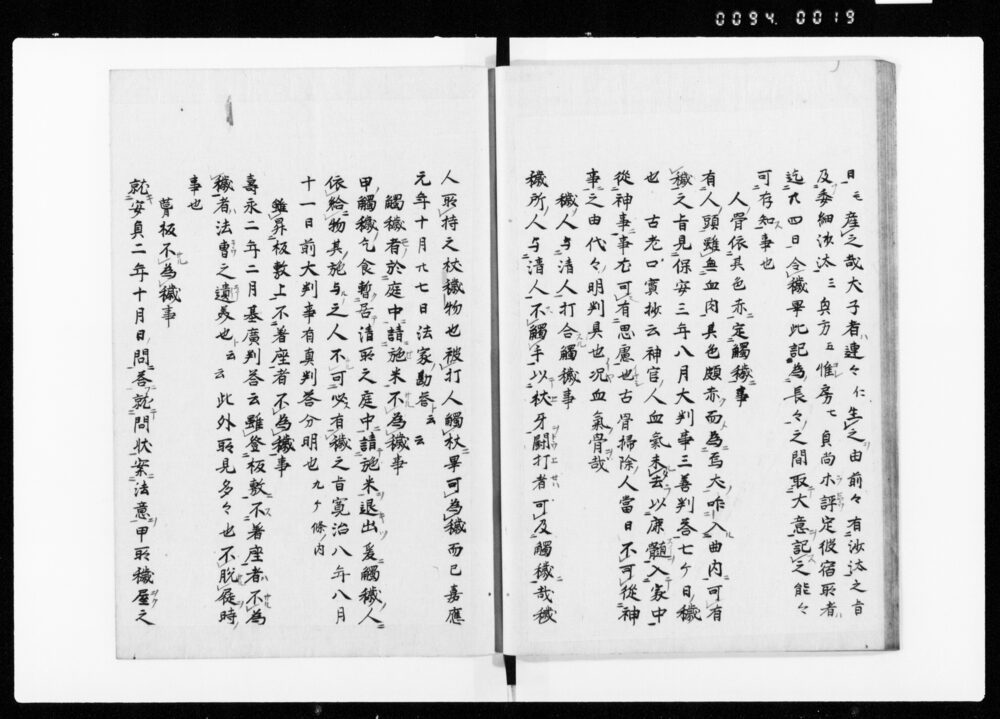 0094.0019
日ニ産之哉犬子者連々仁生之由前々有沙汰之旨
及委細沙汰三貞方五惟房七貞尚木評定仮宿所者
迄九四日令穢畢此記為長々之間取大意記之能々
可存知事也
人骨依其色赤定觸穢事
有人頭雖無血肉其色頗赤而為焉犬咋入曲内可有
穢之旨見保安三年八月大判事三善判答七ケ日穢
也 古老口實抄云神官人血氣未去以麻髄入家中
從神事事尤可有思慮也古骨掃除人當日不可從神
事之由代々明判具也况血氣骨哉
穢人与清人打合觸穢事
穢所人与清人不觸手以杖牙闘打者可及觸穢哉穢
人所持之杖穢物也被打人觸杖畢可為穢而已嘉應
元年十月廿七日法家勘答云云
觸穢者於庭中請施米不為穢事
甲觸穢乞食暫召清所之庭中請施米退出爰觸穢人
依給物其施与之人不可必有穢之旨寛治八年八月
十一日前大判事有真判答分明也九ケ條内
雖昇板敷上不著座者不為穢事
壽永二年二月基廣判答云雖登板敷不著座者不為
穢者法曹之遺美也云云此外所見多々也不脱屣時
事也
葺板不為穢事
就安貞二年十月日問答就問状案法意甲所穢屋之